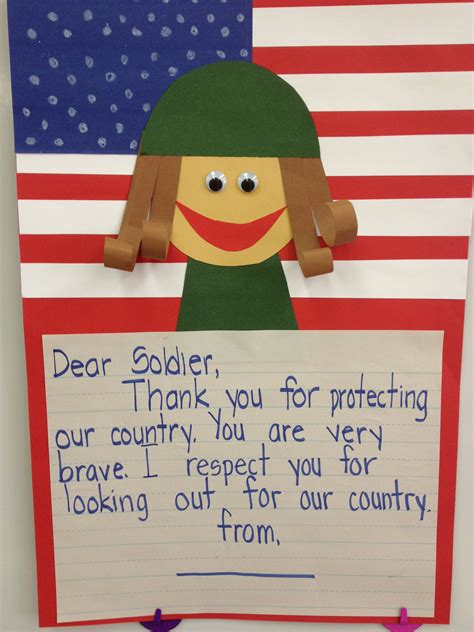 Dear Soldier,
Thank you for protecting
our country. You are very
brave. I respect you for
looking out for our country.
from,